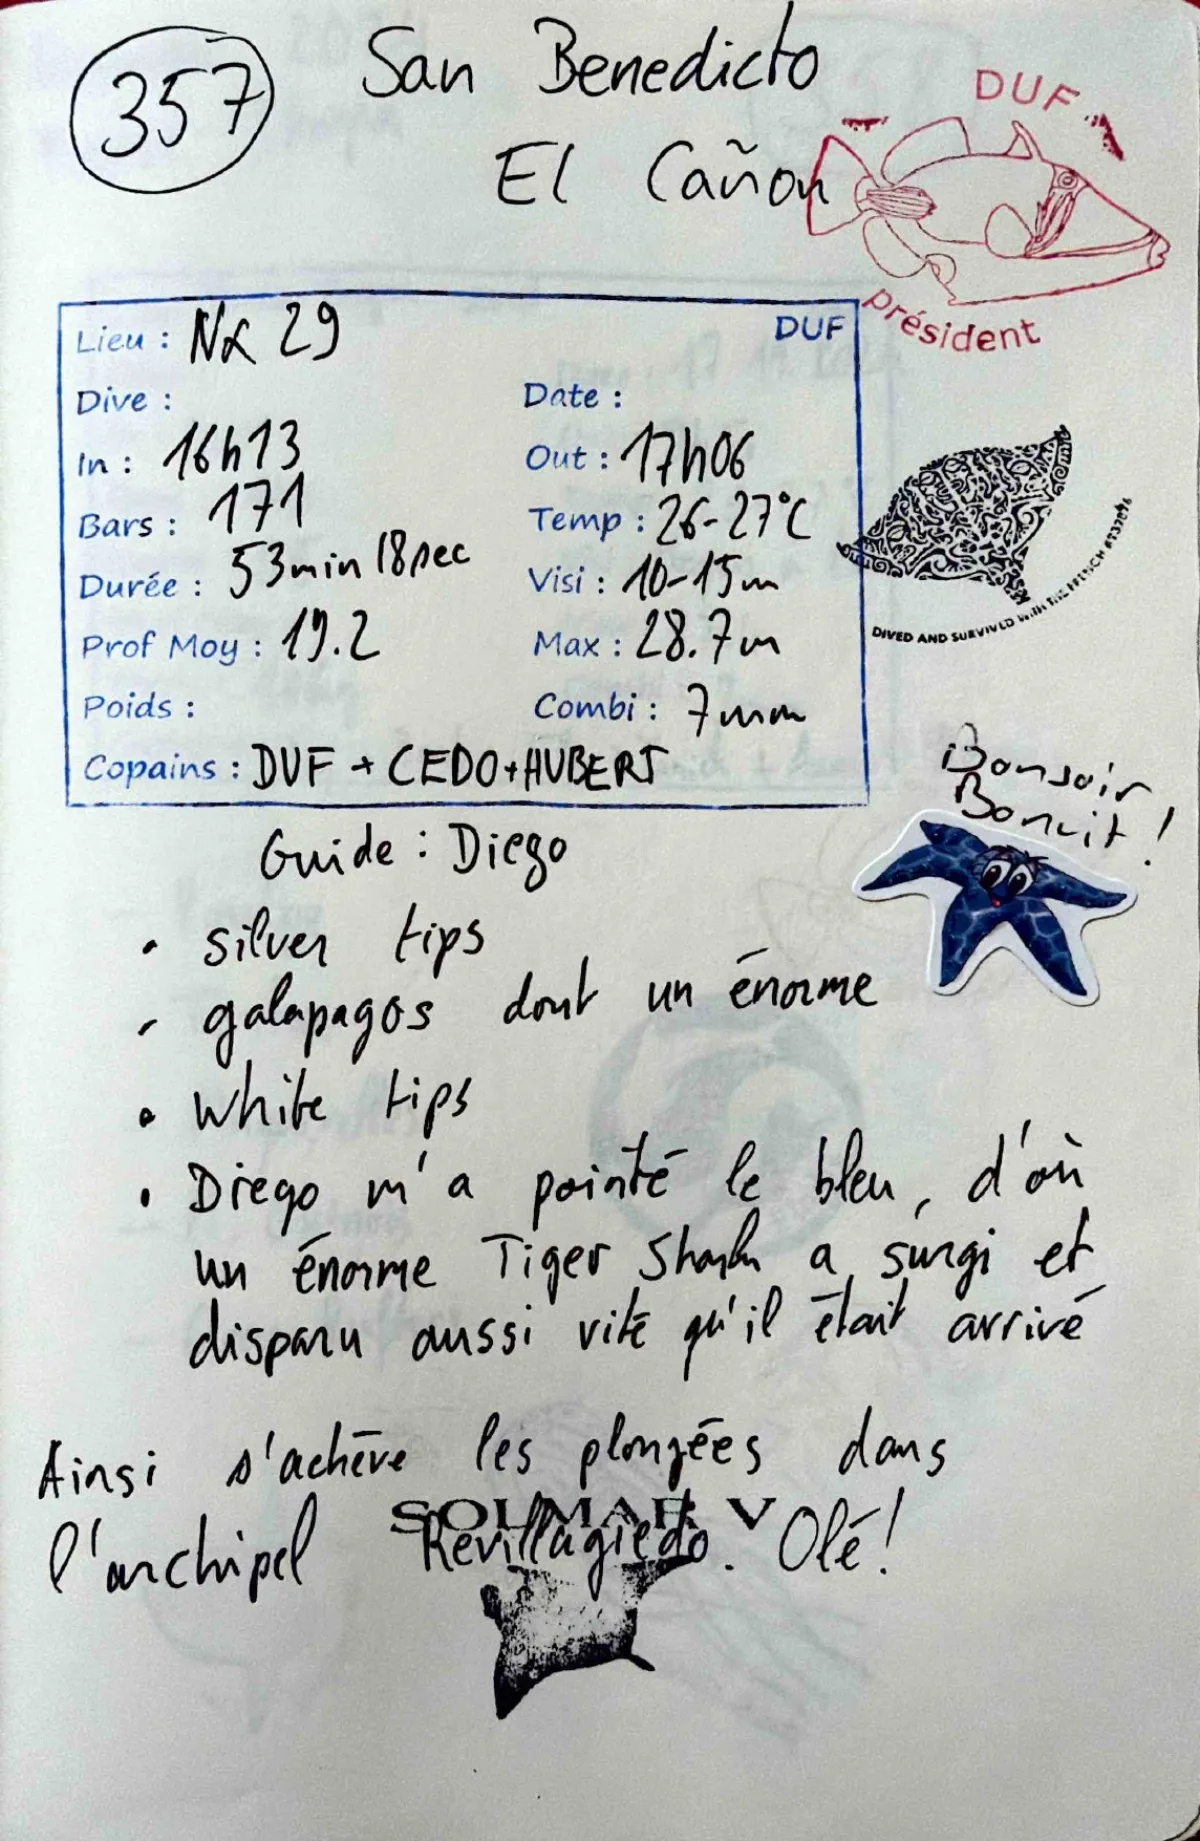 357
San Benedicto
El Cañon
DUF
président
Lieu : Nx 29 DUF
Dive : Date :
In : 16h13 Out : 17h06
Bars : 171 Temp : 26-27°C
Durée : 53min 18sec Visi : 10-15m
Prof Moy : 19.2 Max : 28.7m
Poids : Combi : 7mm
Copains : DUF + CEDO + HUBERT
DIVED AND SURVIVED WITH THE FRENCH
Bonsoir
Bonuit !
Guide : Diego
• silver tips
- galapagos dont un énorme
• white tips
• Diego m'a pointé le bleu, d'où
un énorme Tiger Shark a surgi et
disparu aussi vite qu'il était arrivé
Ainsi s'achève les plongées dans
SOLMAR V
l'archipel Revillagiedo. Olé!